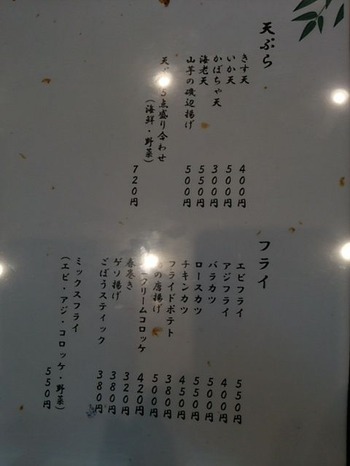 天ぷら
きす天 400円
いか天 500円
かぼちゃ天 300円
海老天 550円
山芋の磯辺揚げ 500円
5点盛り合わせ
(海鮮・野菜) 720円
フライ
エビフライ 550円
アジフライ 400円
バラカツ 500円
ロースカツ 550円
チキンカツ 450円
フライドポテト 380円
の唐揚げ 500円
クリームコロッケ 420円
春巻き 320円
ゲソ揚げ 380円
ごぼうスティック 380円
ミックスフライ
(エビ・アジ・コロッケ・野菜) 550円